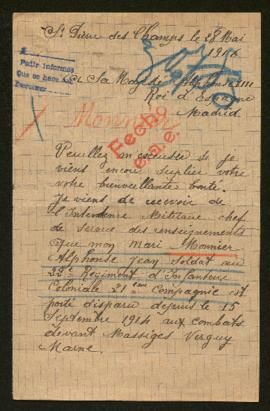 St Pierre des Champs le 28 Mai
1916
A Sa Majesté Alphonse XIII
Roi d'Espagne
Madrid
Pedir informes
Que se hace
Monnier
Fecho
Veuillez m'excuser si je
viens encore supplier votre
votre bienveillante bonté.
Je viens de recevoir de
l'Intendance Militaire chef
de service des renseignements
que mon mari Monnier
Alphonse Jean Soldat au
22e Régiment d'Infanterie
Coloniale 21eme Compagnie est
porté disparu depuis le 15
Septembre 1914 aux combats
devant Massiges Verguy
Marne